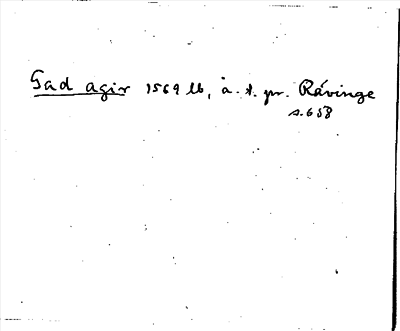 Gad agir 1569 lb, å. t. pr. Rävinge
s. 658